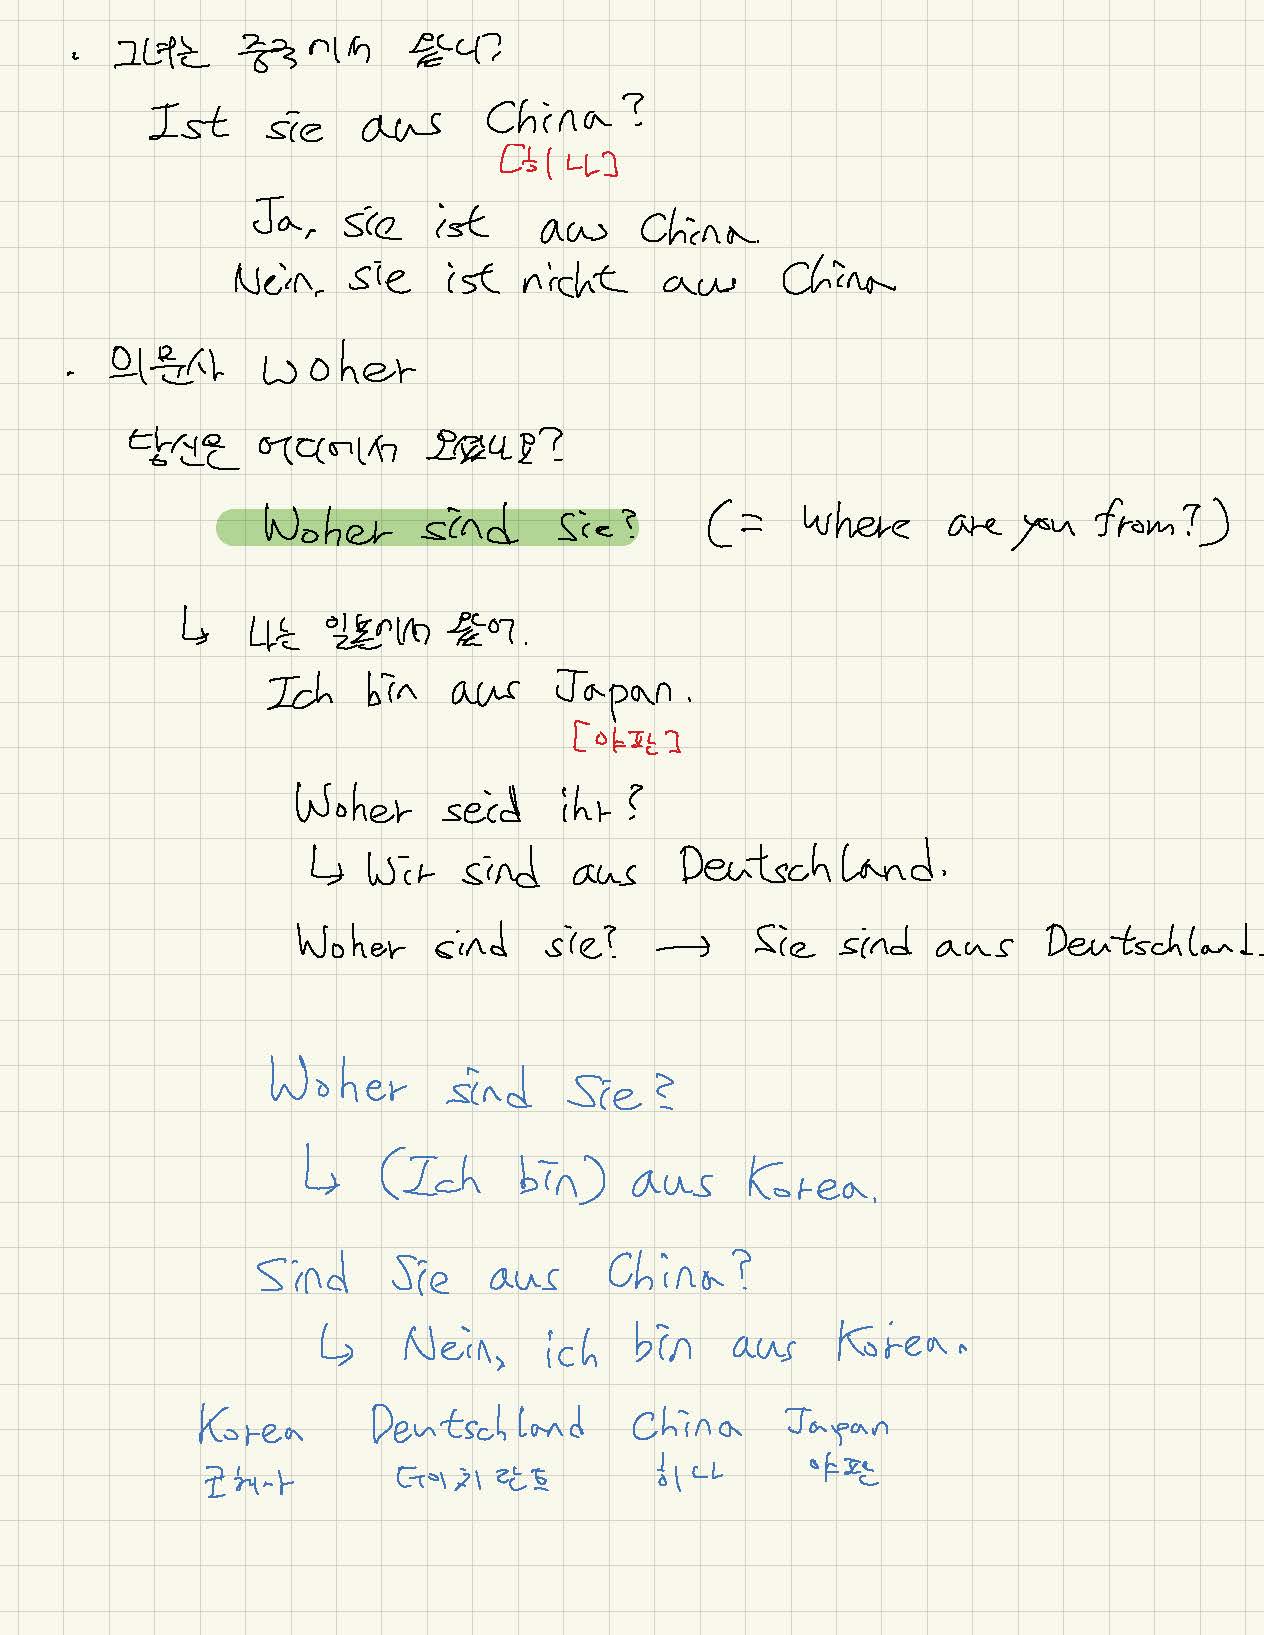 · 그녀는 중국에서 왔니?
Ist sie aus China?
[히나]
Ja, sie ist aus China.
Nein, sie ist nicht aus China
· 의문사 woher
당신은 어디에서 오셨나요?
Woher sind Sie? (= where are you from?)
↳ 나는 일본에서 왔어.
Ich bin aus Japan.
[야판]
Woher seid ihr?
↳ Wir sind aus Deutschland.
Woher sind sie? → Sie sind aus Deutschland.
Woher sind Sie?
↳ (Ich bin) aus Korea.
Sind Sie aus China?
↳ Nein, ich bin aus Korea.
Korea Deutschland China Japan
코헤아 더이치란트 히나 야판